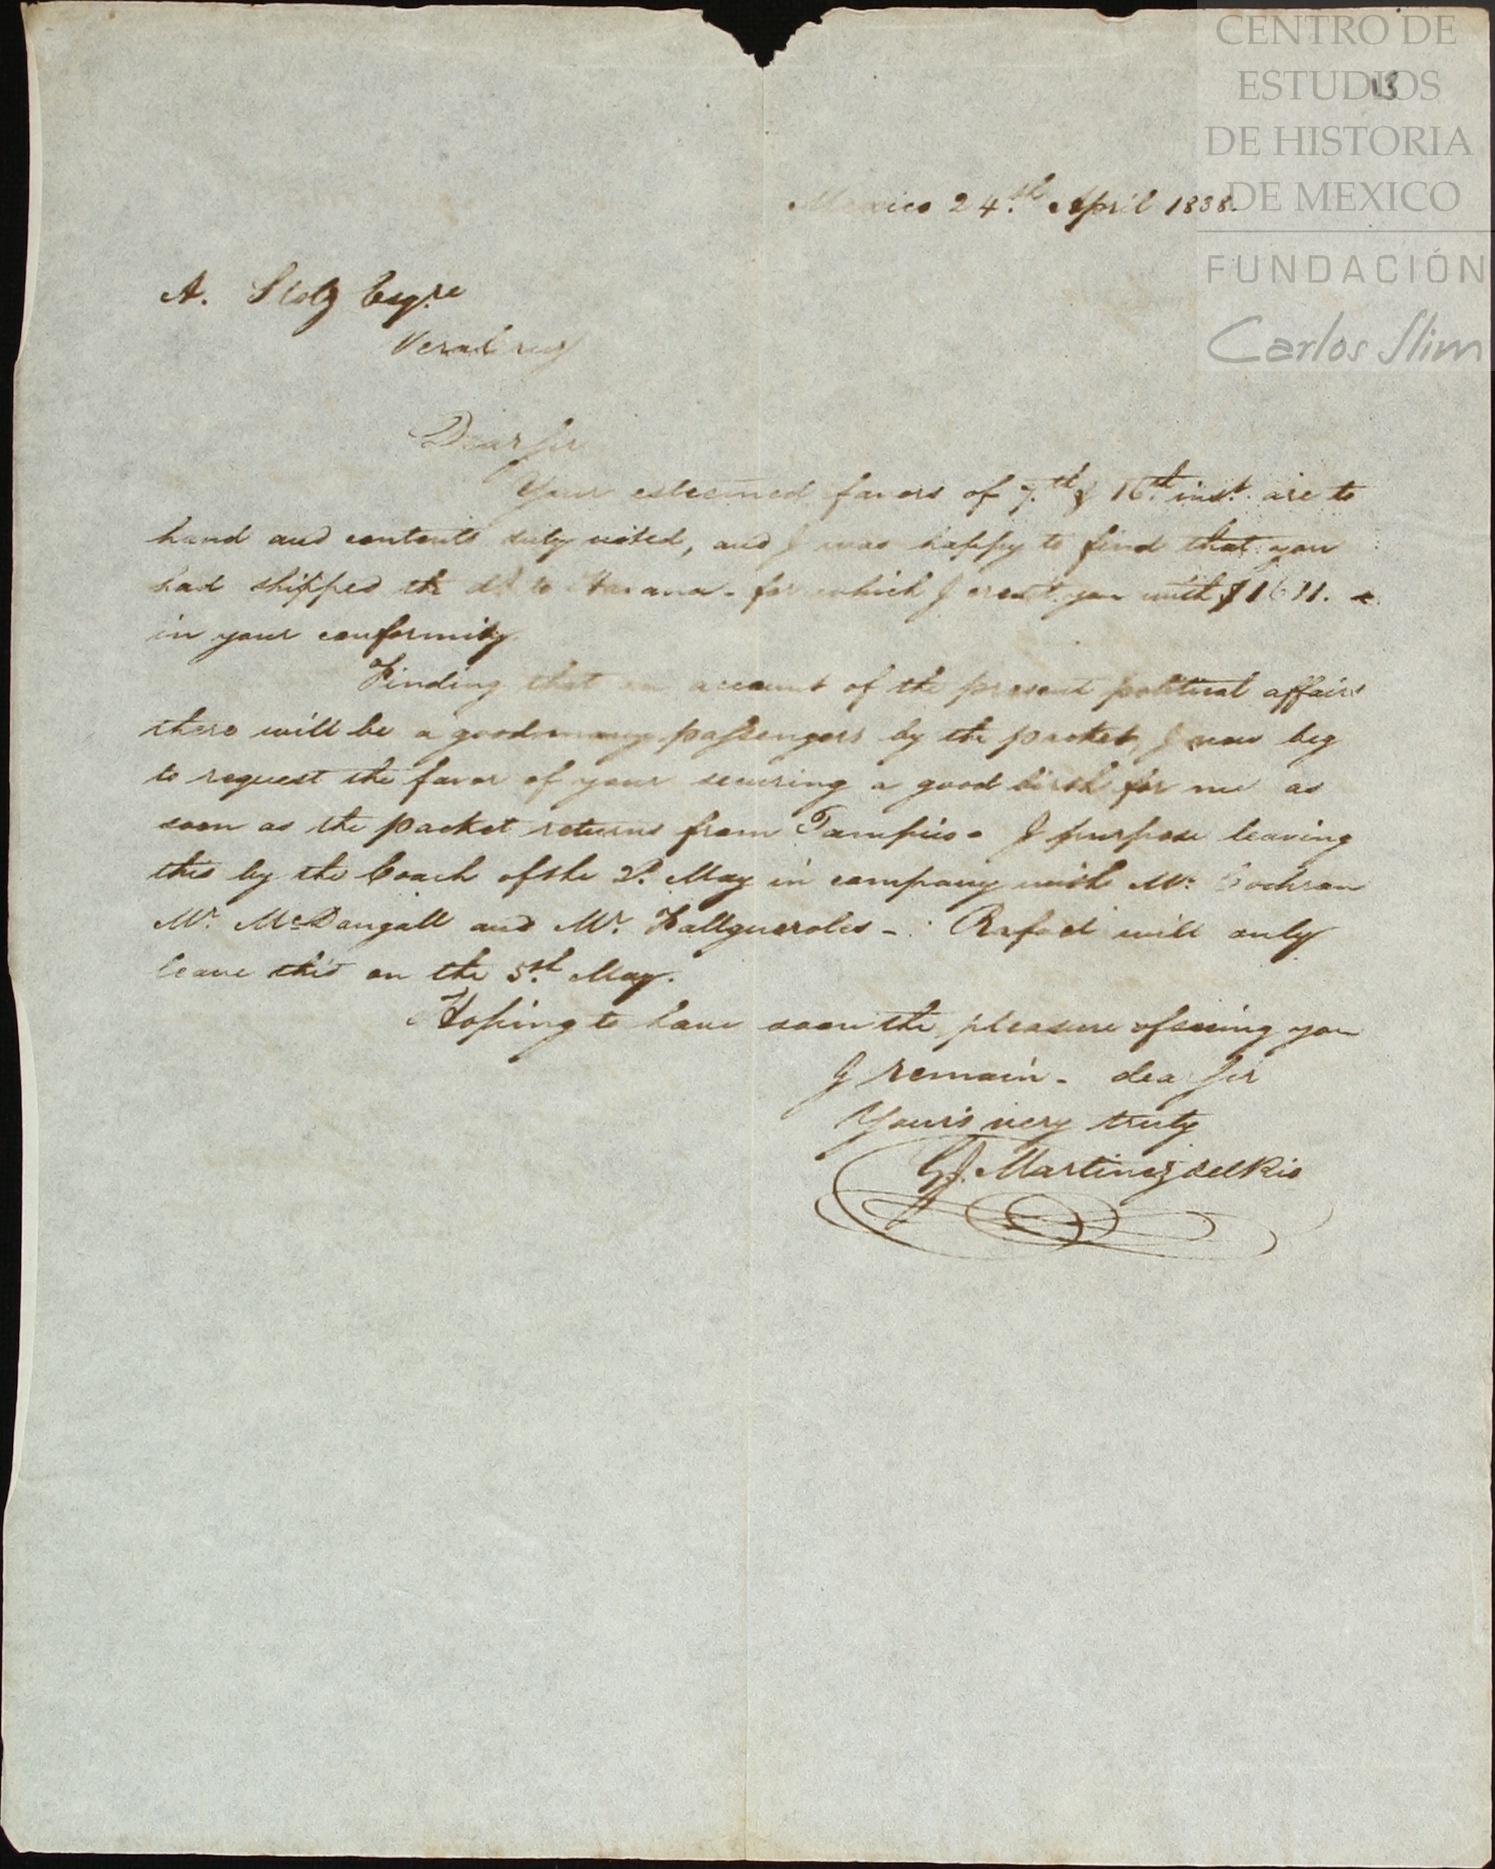 CENTRO DE
ESTUDIOS
DE HISTORIA
DE MEXICO
FUNDACIÓN
Carlos Slim
13
Mexico 24.th April 1838.
A. Stolz Esqre
Veracruz
Dear Sir
Your esteemed favors of 7.th & 16.th inst. are to
hand and contents duly noted, and I was happy to find that you
had shipped the to Havana - for which I credit you with $
in your conformity
Finding that on account of the present political affairs
there will be a good many passengers by the packet, I now beg
to request the favor of your securing a good birth for me as
soon as the packet returns from Tampico - I purpose leaving
this by the Coach of the 2d. May in company with Mr. Cochran
Mr. McDougall and Mr. - Rafael will only
leave this on the 5.th May.
Hoping to have soon the pleasure of seeing you
I remain - dear Sir
Your's very truly
G J. Martinez del Rio